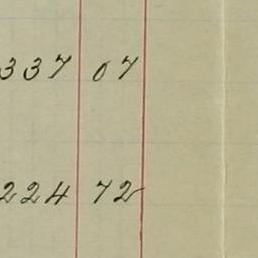 337 07
224 72